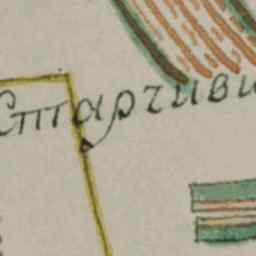 Старчиви